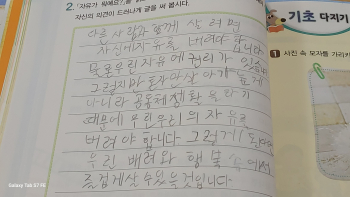 2. 「자유가 뭐예요?」를
자신의 의견이 드러나게 글을 써 봅시다.
다른 사람과 함께 살려면
자신에 자유를 버려야 합니다
물론 우린 자유에 권리가 있습니다
그렇지만 혼자만 살아가는 게
아니라 공동체 생활을 하기
때문에 우린 우리의 자유를
버려야 합니다. 그렇게
우린 배려와 행복 속에서
즐겁게 살 수 있을 것입니다.
기초 다지기
1 사진 속 모자를 가리키
Galaxy Tab S7 FE